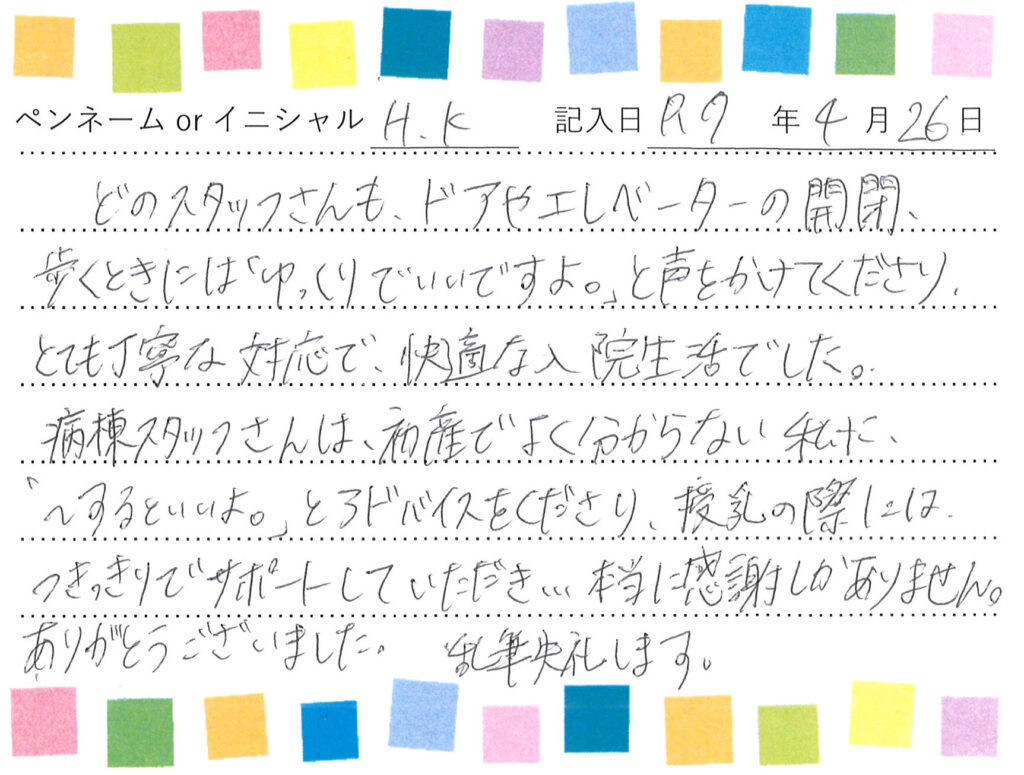 ペンネーム or イニシャル H.K 記入日 R7 年 4 月 26 日
どのスタッフさんも、ドアやエレベーターの開閉、
歩くときには「ゆっくりでいいですよ。」と声をかけてくださり、
とても丁寧な対応で、快適な入院生活でした。
病棟スタッフさんは、初産でよく分からない私に、
「〜するといいよ。」とアドバイスをくださり、授乳の際には
つきっきりでサポートしていただき… 本当に感謝しかありません。
ありがとうございました。 乱筆失礼します。